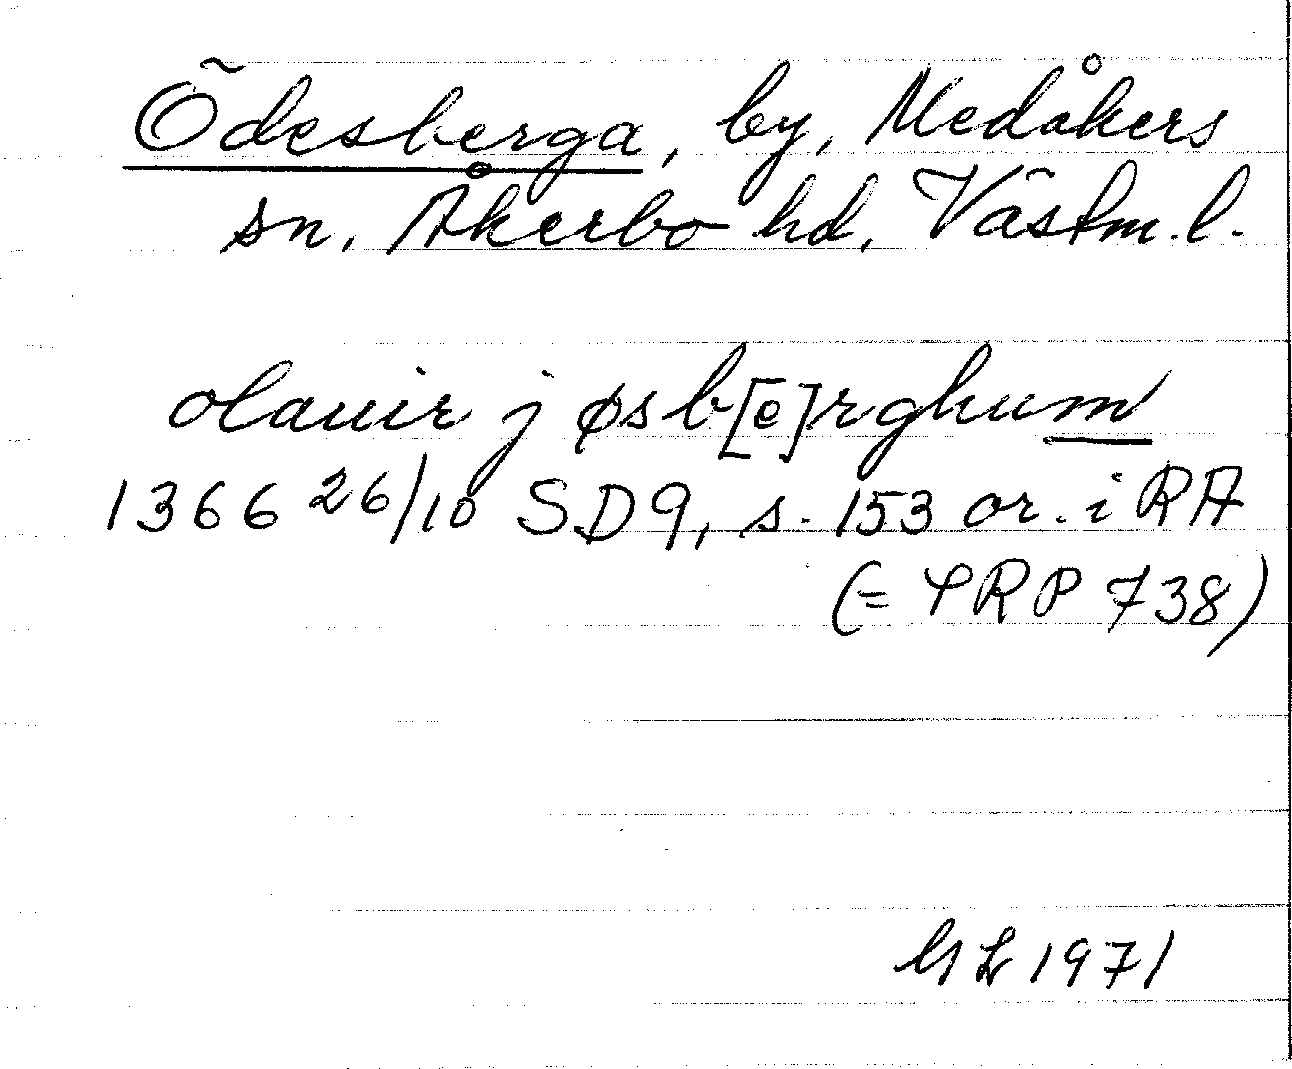 Ödesberga, by, Medåkers
sn, Åkerbo hd, Västm. l.
olauir j øsb[e]rghum
1366 26/10 SD 9, s. 153 or. i RA
(= SRP 738)
1971